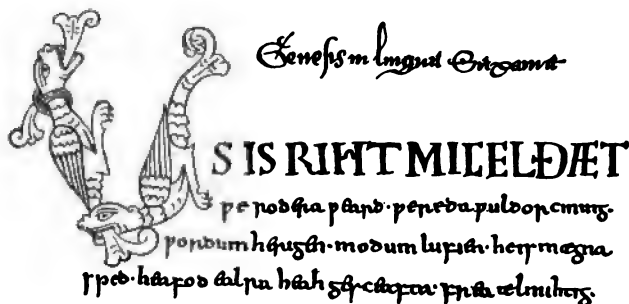 Genesis in lingua Saxanica
US IS RIHT MICEL ÐÆT
ƿe rodera ƿeard · ƿereda ƿuldor cining ·
ƿordum herigen · modum lufien · he is mægna
sped · heafod ealra heah gesceafta · frea ælmihtig ·